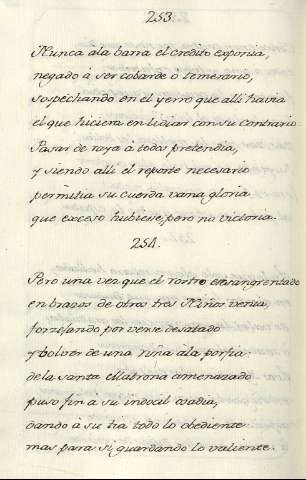 253.
Nunca ála barra el credito exponia,
negado á ser cobarde ó temerario,
sospechando en el yerro que alli havia
el que hiciera en lidiar con su contrario.
Pasar de raya á todos pretendia,
y siendo alli el reporte necesario
permitia su cuerda vana gloria
que exceso hubiese, pero no victoria.
254.
Pero una vez que el rostro ensangrentado
en brazos de otros tres Niños venia
forzejando por verse desatado
y bolver de una riña ala porfia:
dela santa Matrona amenazado
puso fin á su indocil osadia,
dando á su tia todo lo obediente
mas para si, guardando lo valiente.